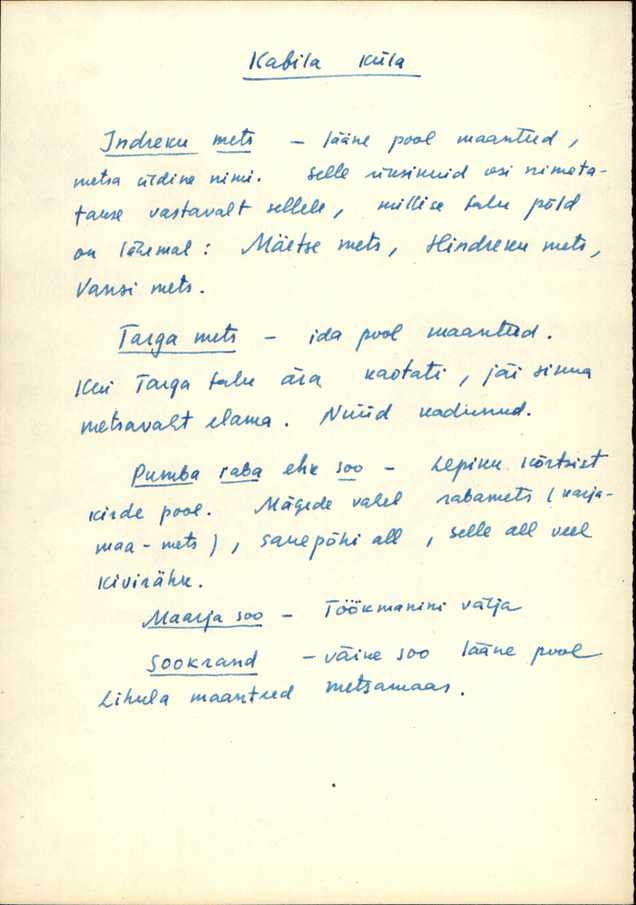 Kabila küla
Indreku mets - lääne pool maanteed,
metsa üldine nimi. Selle üksikuid osi nimeta-
takse vastavalt sellele, millise talu põld
on lähemal: Mäetse mets, Hindreku mets,
Vansi mets.
Targa mets - ida pool maanteed.
Kui Targa talu ära kaotati, jäi sinna
metsavaht elama. Nüüd kadunud.
Pumba raba ehk soo - Lepiku kõrtsist
kirde pool. Mägede vahel rabamets (karja-
maa-mets), savepõhi all, selle all veel
kivirähk.
Maarja soo - Töökmanini välja
Sookrand - väike soo lääne pool
Lihula maanteed metsamaas.